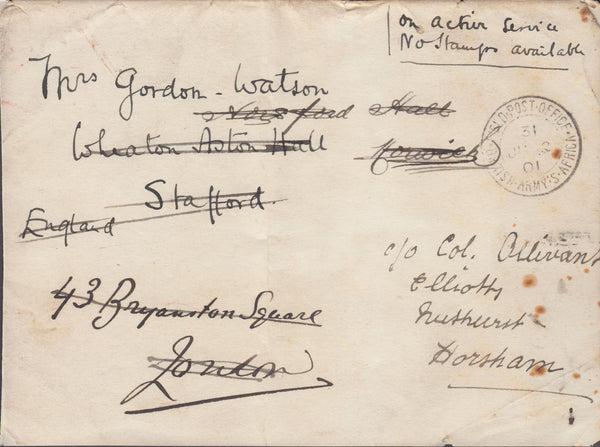 on active service
No Stamps available
Mrs Gordon-Watson
Hall
Wheaton Aston Hall
Norwich
Stafford.
England
FIELD·POST·OFFICE·BRITISH·ARMY·S·AFRICA
31
01
c/o Col. Ollivant
Elliotts
Nuthurst
Horsham
43 Bryanston Square
London